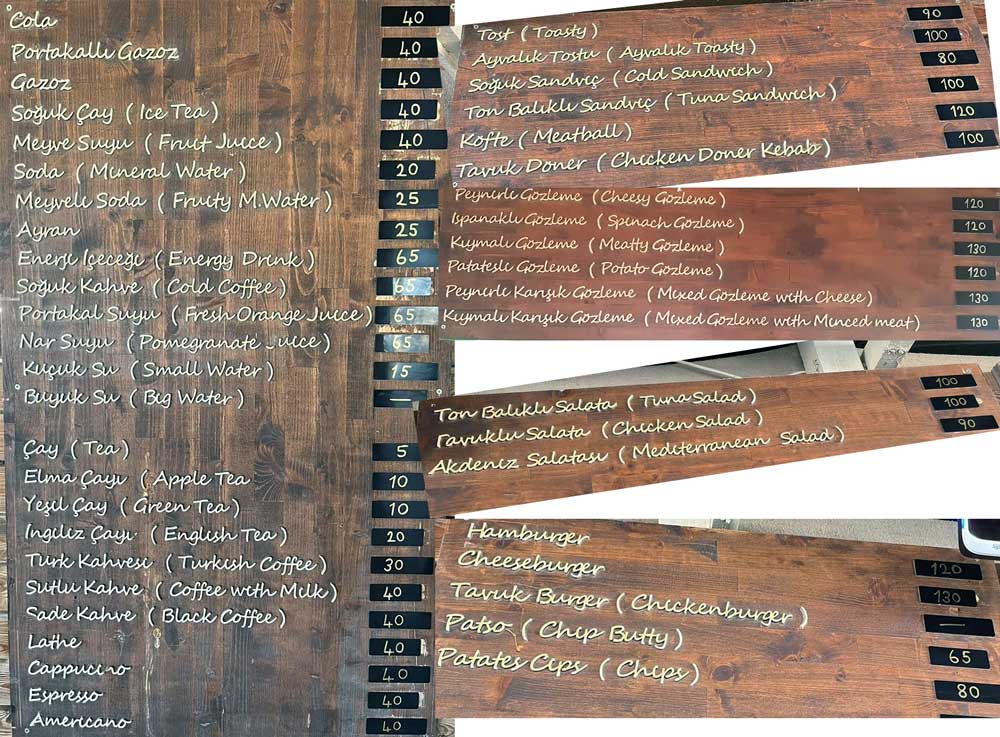 Cola 40
Portakallı Gazoz 40
Gazoz 40
Soğuk Çay (Ice Tea) 40
Meyve Suyu (Fruit Juice) 40
Soda (Mineral Water) 20
Meyveli Soda (Fruity M.Water) 25
Ayran 25
Enerji İçeceği (Energy Drink) 65
Soğuk Kahve (Cold Coffee) 65
Portakal Suyu (Fresh Orange Juice) 65
Nar Suyu (Pomegranate Juice) 65
Küçük Su (Small Water) 15
Büyük Su (Big Water) —
Çay (Tea) 5
Elma Çayı (Apple Tea 10
Yeşil Çay (Green Tea) 10
İngiliz Çayı (English Tea) 20
Türk Kahvesi (Turkish Coffee) 30
Sütlü Kahve (Coffee with Milk) 40
Sade Kahve (Black Coffee) 40
Lathe 40
Cappucino 40
Espresso 40
Americano 40
Tost (Toasty) 90
Ayvalık Tostu (Ayvalık Toasty) 100
Soğuk Sandviç (Cold Sandwich) 80
Ton Balıklı Sandviç (Tuna Sandwich) 100
Köfte (Meatball) 120
Tavuk Döner (Chicken Doner Kebab) 100
Peynirli Gözleme (Cheesy Gözleme) 120
Ispanaklı Gözleme (Spinach Gözleme) 120
Kıymalı Gözleme (Meatty Gözleme) 130
Patatesli Gözleme (Potato Gözleme) 120
Peynirli Karışık Gözleme (Mixed Gözleme with Cheese) 130
Kıymalı Karışık Gözleme (Mixed Gözleme with Minced meat) 130
Ton Balıklı Salata (Tuna Salad) 100
Tavuklu Salata (Chicken Salad) 100
Akdeniz Salatası (Mediterranean Salad) 90
Hamburger 120
Cheeseburger 130
Tavuk Burger (Chickenburger) —
Patso (Chip Butty) 65
Patates Cips (Chips) 80